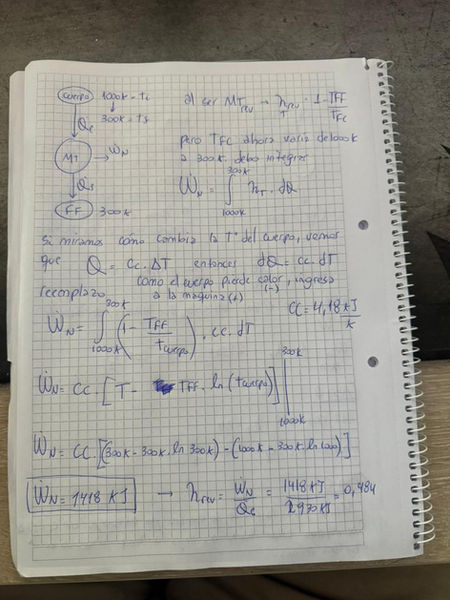 cuerpo 1000K = ti
300K = ts
Qc
MT → ẆN
Qs
FF 300K
al ser MTrev → ηrev T = 1 - TFF/TFC
pero TFC ahora varía de 1000K
a 300K. debo integrar
ẆN = ∫ 1000K 300K ηT . dQ
Si miramos cómo cambia la T° del cuerpo, vemos
que Q = Cc. ΔT entonces dQ = cc. dT
reemplazo como el cuerpo pierde calor (-), ingresa
a la maquina (+)
CC = 4,18 KJ/K
ẆN = ∫ 1000K 300K (1 - TFF/tcuerpo) . cc. dT
ẆN = CC . [T - TFF. ln (tcuerpo)] | 300K 1000K
ẆN = CC. [(300K - 300K. ln 300K) - (1000K - 300K. ln 1000)]
ẆN = 1418 KJ → ηrev = ẆN/Qc = 1418 KJ/2930 KJ = 0,484